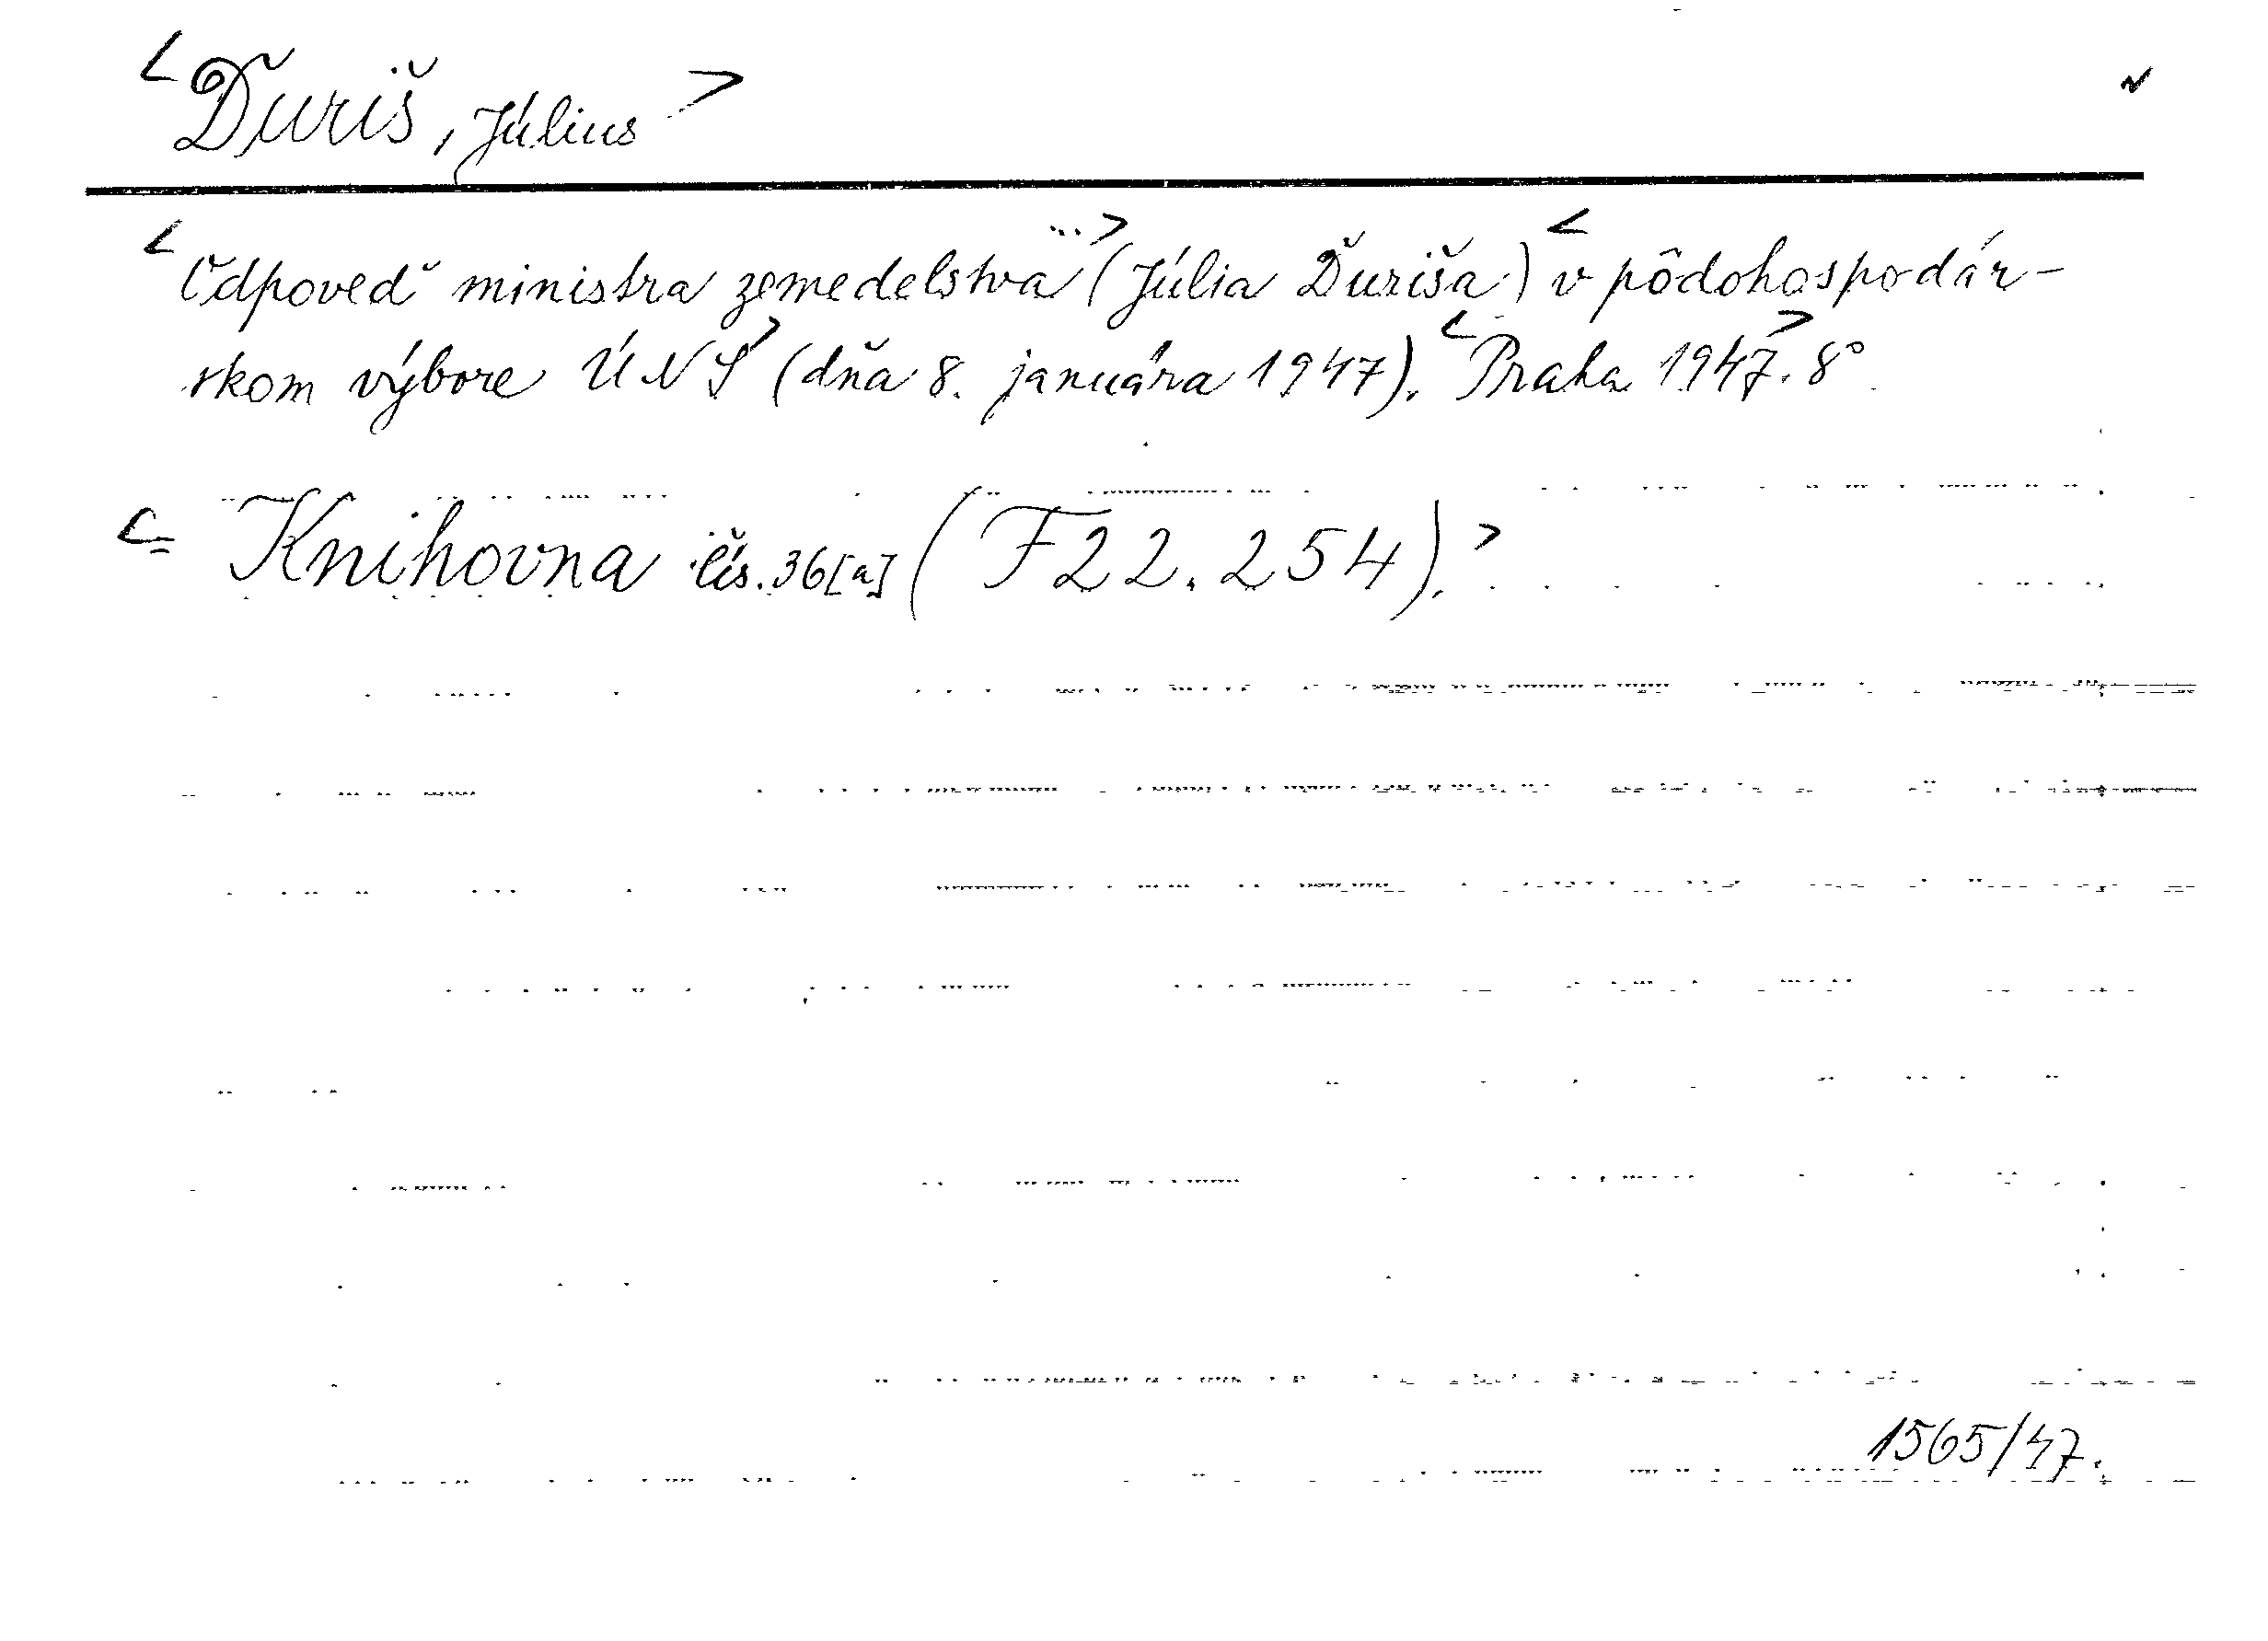 <Ďuriš, Július>
<Odpoveď ministra zemedelstva...> (Júlia Ďuriša) <v pôdohospodár-
skom výbore ÚNS> (dňa 8. januára 1947). <Praha 1947>. 8°
<= Knihovna čís. 36[a] (F22.254).>
1565/47.